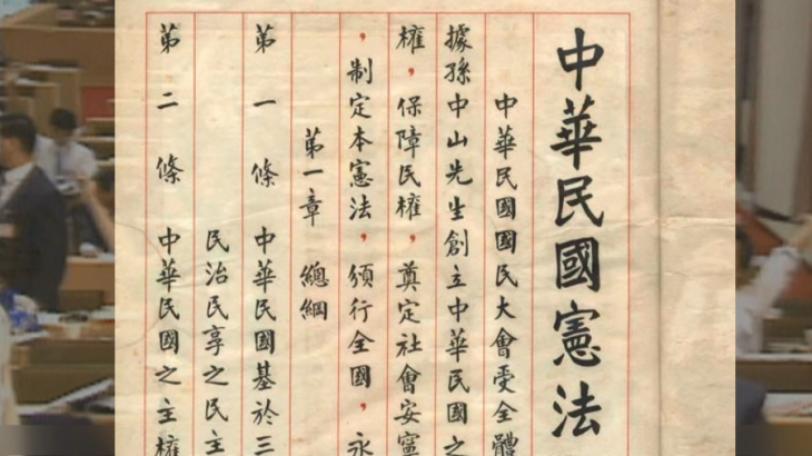 中華民國憲法
中華民國國民大會受全體
據孫中山先生創立中華民國之
權，保障民權，奠定社會安寧
，制定本憲法，頒行全國，永
第一章　總綱
第一條　中華民國基於三
民治民享之民主
第二條　中華民國之主權